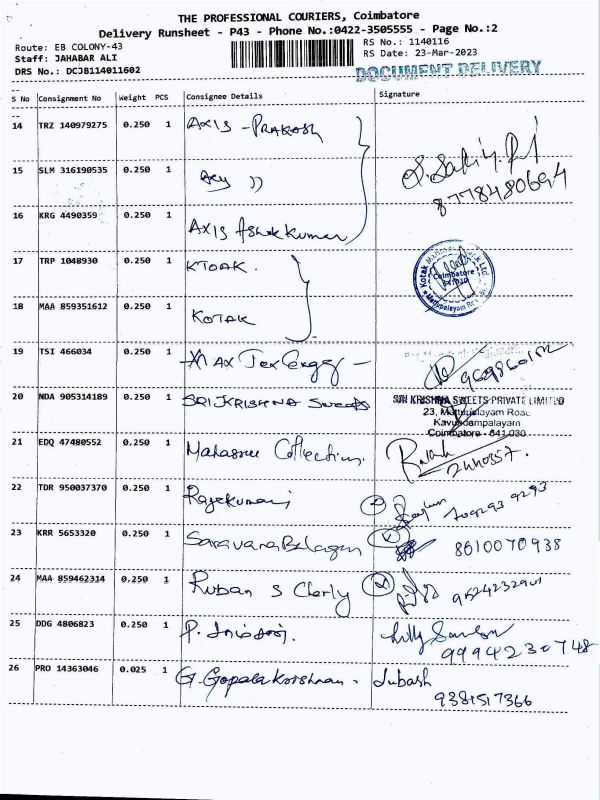 THE PROFESSIONAL COURIERS, Coimbatore
Delivery Runsheet - P43 - Phone No.:0422-3505555 - Page No.:2
Route: EB COLONY-43 RS No.: 1140116
Staff: JAHABAR ALI RS Date: 23-Mar-2023
DRS No.: DCJB114011602 DOCUMENT DELIVERY
S No Consignment No Weight PCS Consignee Details Signature
14 TRZ 140979275 0.250 1 AXIS - PRAKASH
15 SLM 316190535 0.250 1
8778480694
16 KRG 4490359 0.250 1 AXIS Ashok Kumar
17 TRP 1048930 0.250 1 KTOAK.
Coimbatore
18 MAA 859351612 0.250 1 KOTAK
19 TSI 466034 0.250 1
20 NDA 905314189 0.250 1 SRI KRISHNA Sweets SRI KRISHNA SWEETS PRIVATE LIMITED
23, Mettupalayam Road
Kavundampalayam
Coimbatore - 641 030
21 EDQ 47480552 0.250 1 Collection. 2440357.
22 TDR 950037370 0.250 1 Rajekumari
23 KRR 5653320 0.250 1 8610070938
24 MAA 859462314 0.250 1 Ruban S
25 DDG 4806823 0.250 1 P.
9994230748
26 PRO 14363046 0.025 1 G. Gopalakrishnan - Subash
9381517366